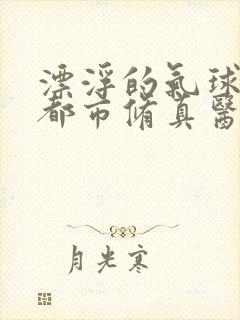 漂浮的氣球
都市脩真醫
月光寒